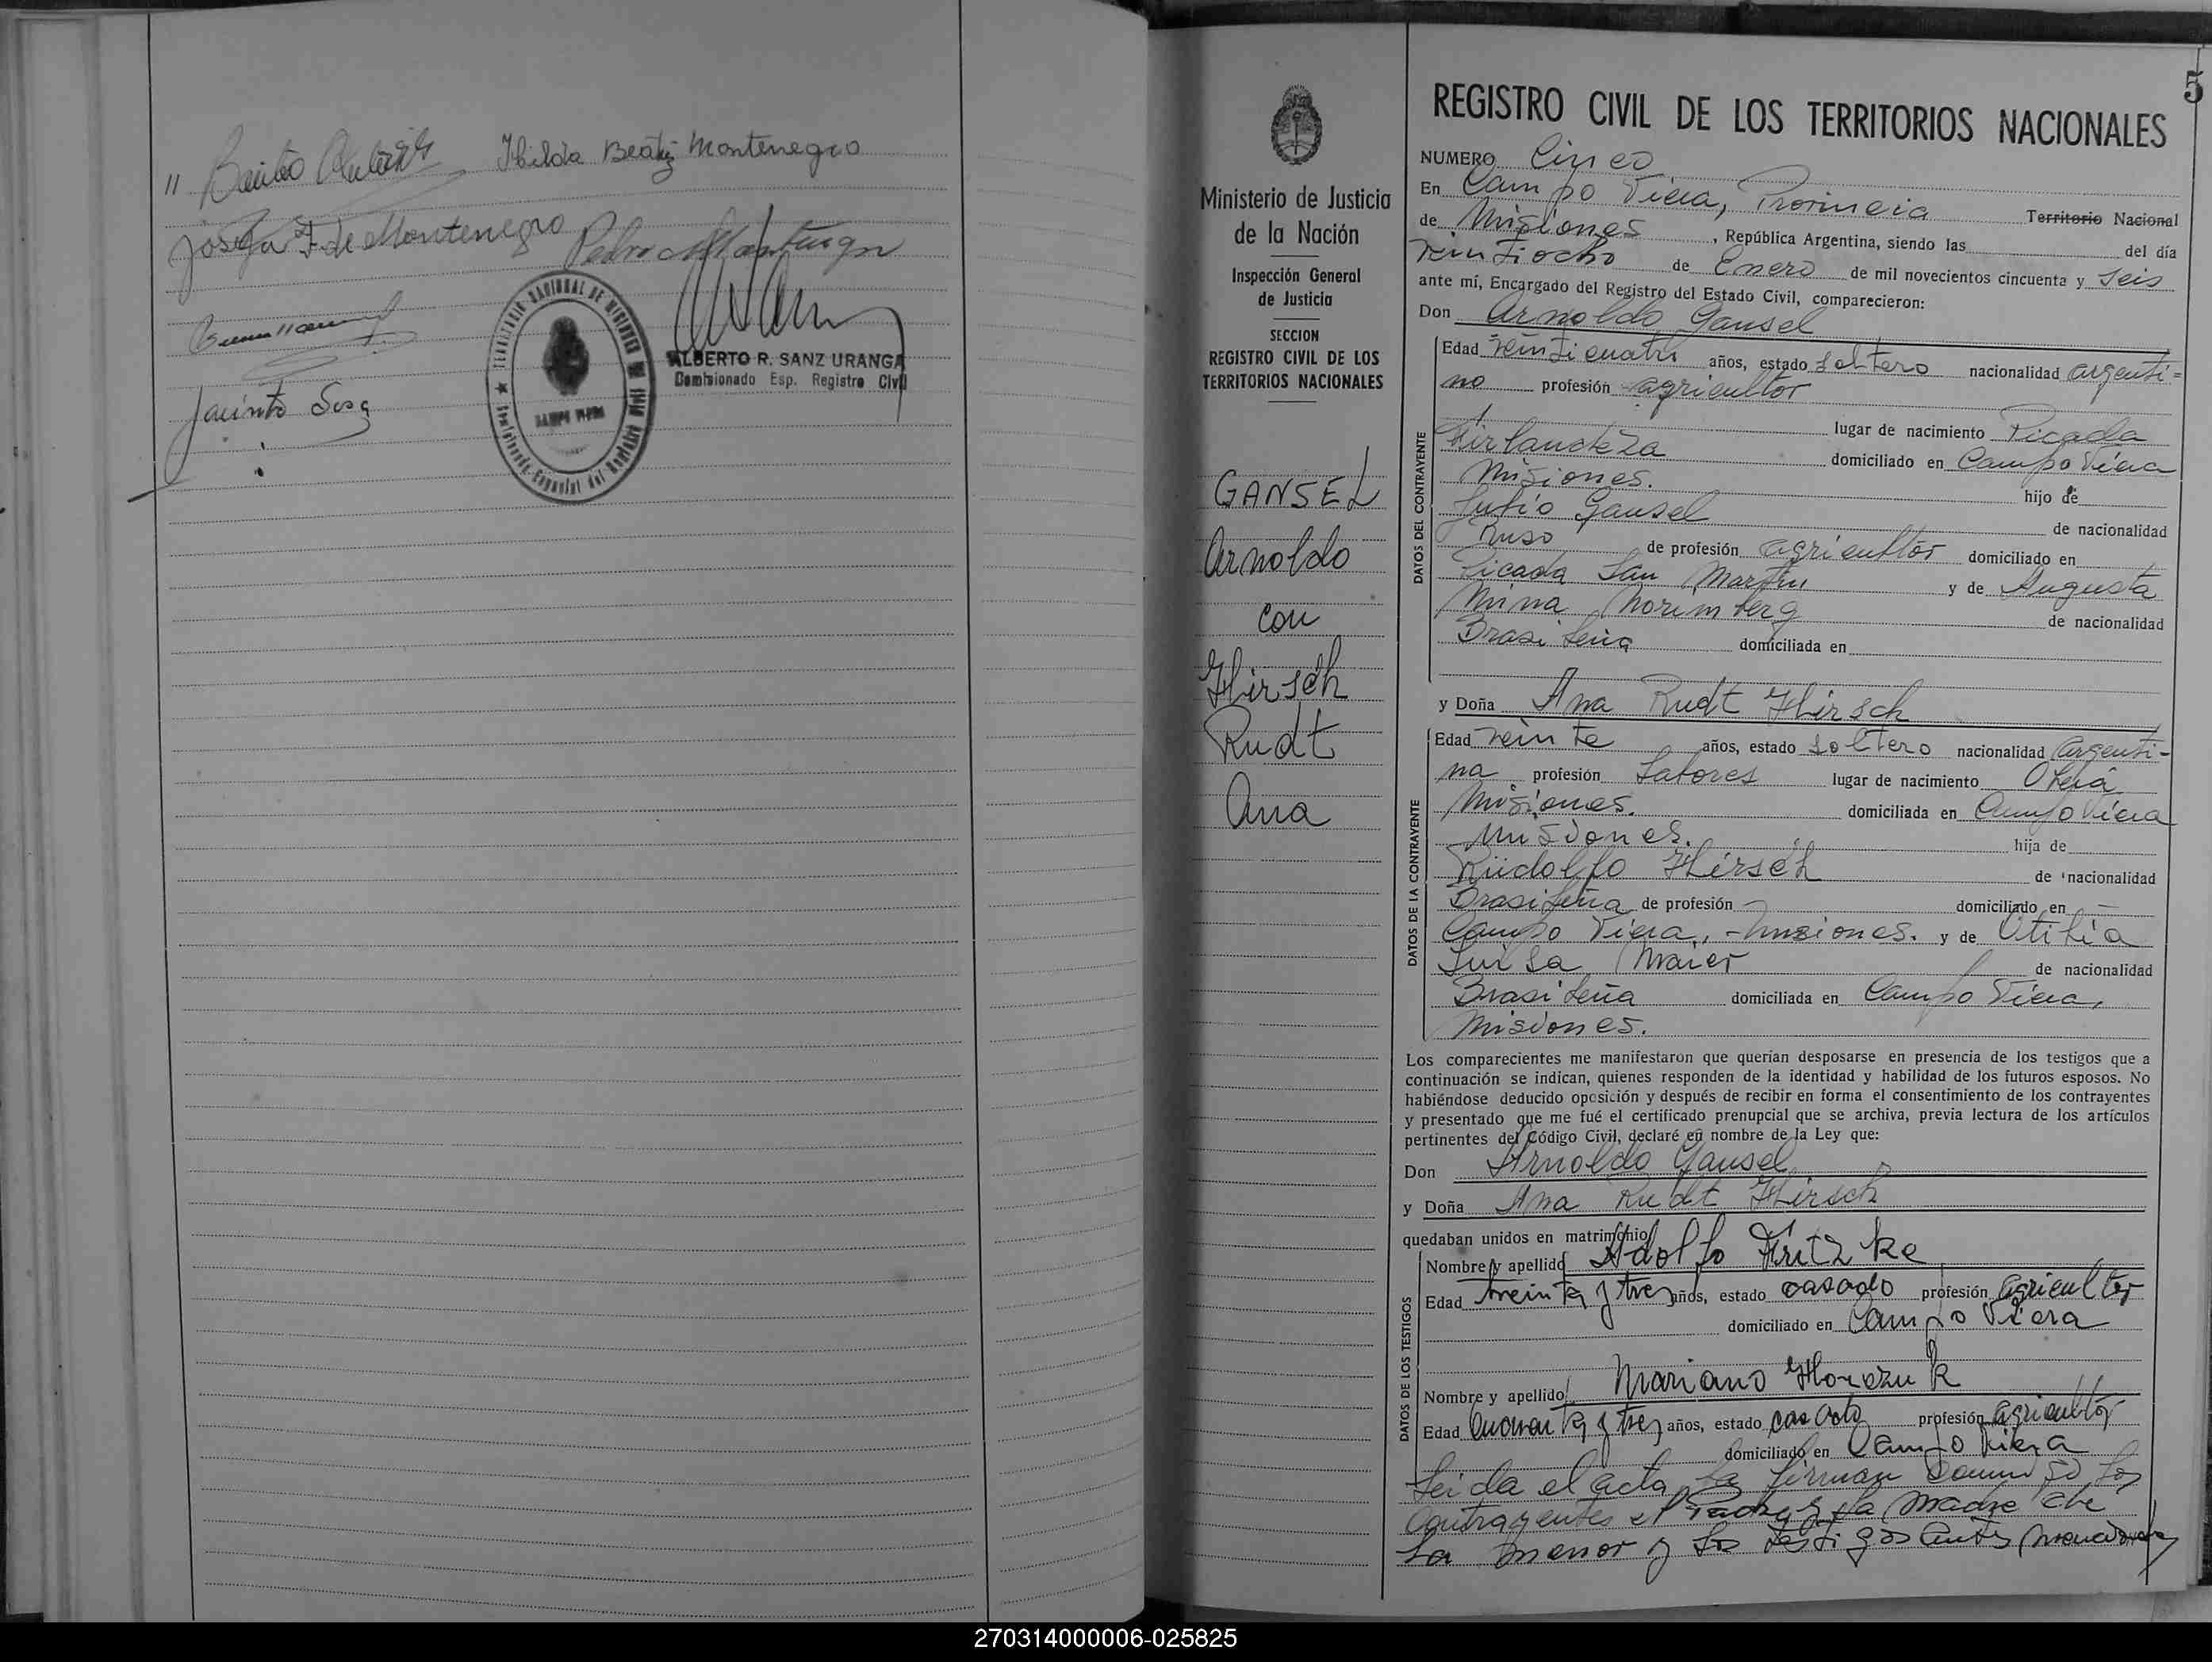 " Benito Hilda Beatriz Montenegro
Josefa F. de Montenegro Pedro
Jacinto Sosa
ALBERTO R. SANZ URANGA
Comisionado Esp. Registro Civil
5
Ministerio de Justicia
de la Nación
Inspección General
de Justicia
SECCION
REGISTRO CIVIL DE LOS
TERRITORIOS NACIONALES
GANSEL
Arnoldo
con
Hirsch
Rudt
Ana
REGISTRO CIVIL DE LOS TERRITORIOS NACIONALES
NUMERO Cinco
En Campo Viera, Provincia Territorio Nacional
de Misiones, República Argentina, siendo las del día
veintiocho de Enero de mil novecientos cincuenta y seis
ante mí, Encargado del Registro del Estado Civil, comparecieron:
Don Arnoldo Gansel
DATOS DEL CONTRAYENTE
Edad veinticuatro años, estado soltero nacionalidad argenti=
no profesión agricultor
lugar de nacimiento Picada
Firlandeza domiciliado en Campo Viera
Misiones. hijo de
Julio Gansel de nacionalidad
Ruso de profesión agricultor domiciliado en
Picada San Martin y de Augusta
Mina Norimberg de nacionalidad
Brasileña domiciliada en
y Doña Ana Rudt Hirsch
DATOS DE LA CONTRAYENTE
Edad veinte años, estado soltero nacionalidad argenti-
na profesión Labores lugar de nacimiento Oberá
Misiones. domiciliada en Campo Viera
Misiones. hija de
Rüdolfo Hirsch de nacionalidad
Brasileña de profesión - domiciliado en -
Campo Viera, - Misiones. y de Otilia
Luisa Maier de nacionalidad
Brasileña domiciliada en Campo Viera,
Misiones.
Los comparecientes me manifestaron que querían desposarse en presencia de los testigos que a
continuación se indican, quienes responden de la identidad y habilidad de los futuros esposos. No
habiéndose deducido oposición y después de recibir en forma el consentimiento de los contrayentes
y presentado que me fué el certificado prenupcial que se archiva, previa lectura de los artículos
pertinentes del Código Civil, declaré en nombre de la Ley que:
Don Arnoldo Gansel
y Doña Ana Rudt Hirsch
quedaban unidos en matrimonio
DATOS DE LOS TESTIGOS
Nombre y apellido Adolfo Fritzke
Edad treinta y tres años, estado casado profesión agricultor
domiciliado en Campo Viera
Nombre y apellido Mariano Horczuk
Edad cuarenta y tres años, estado casado profesión agricultor
domiciliado en Campo Viera
Leida el acta la firman conmigo los
contrayentes el Padre y la madre de
la menor y los testigos antes mencionados
270314000006-025825